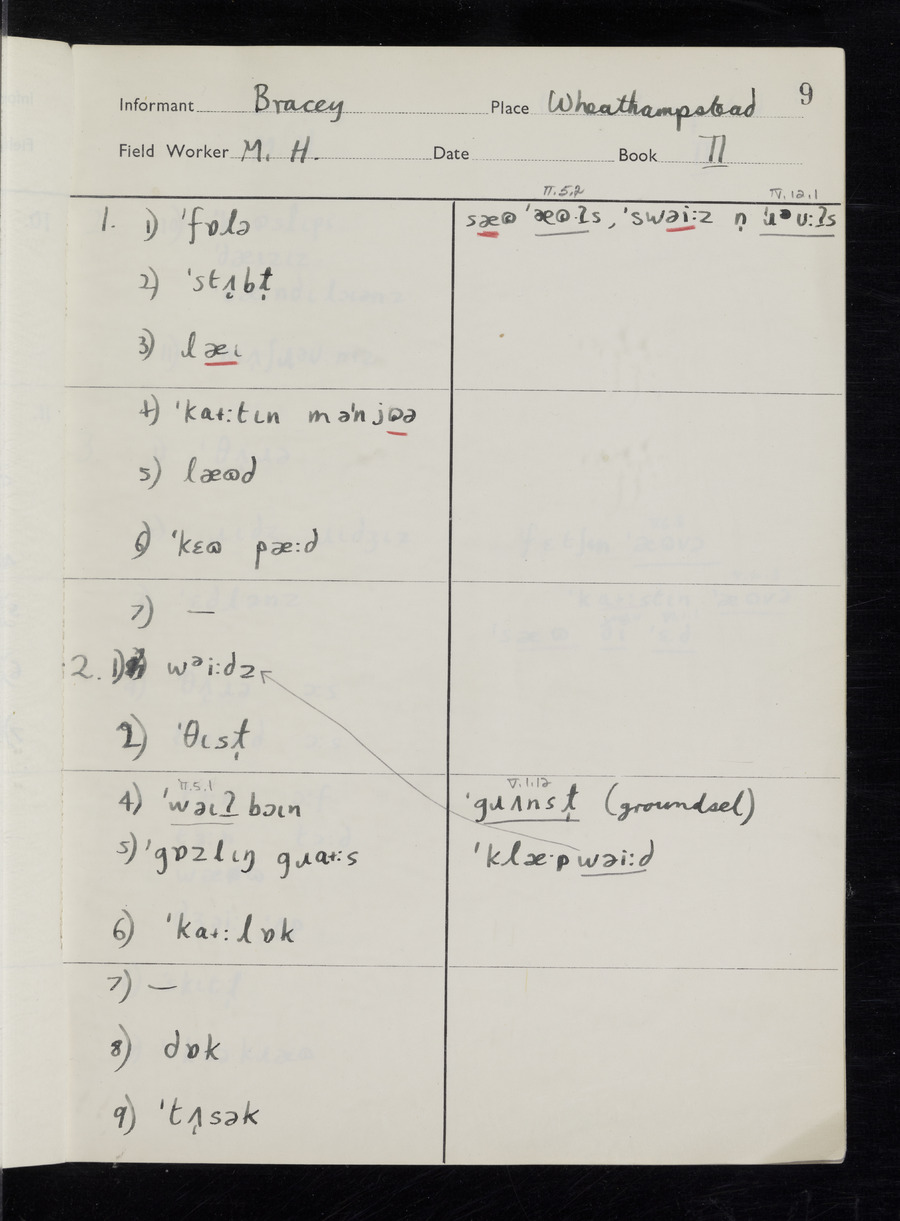 9
Informant Bracey Place Wheathampstead
Field Worker M. H. Date Book II
1. 1) ˈfɒlə
2) ˈstʌ̜bt̩
3) læɪ
4) ˈkaɪ:tɪn məˈnjɷə
5) læɷd
6) ˈkɛɷ pæ:d
7) —
2. 1) wᵊi:dz
2) ˈθɪsɫ̩
II.5.1
4) ˈwəɪʔ bəɪn
5) ˈgɒzlɪŋ gɹa:s
6) ˈka:lɒk
7) —
8) dɒk
9) ˈtʌ̜sək
II.5.2 IV.12.1
sæɷ ˈæɷ·ʔs, ˈswəi:z n̩ ˈɹᵊʊ:ʔs
V.1.12
ˈgɹʌnsɫ̩ (groundsel)
ˈklæ·pwəi:d